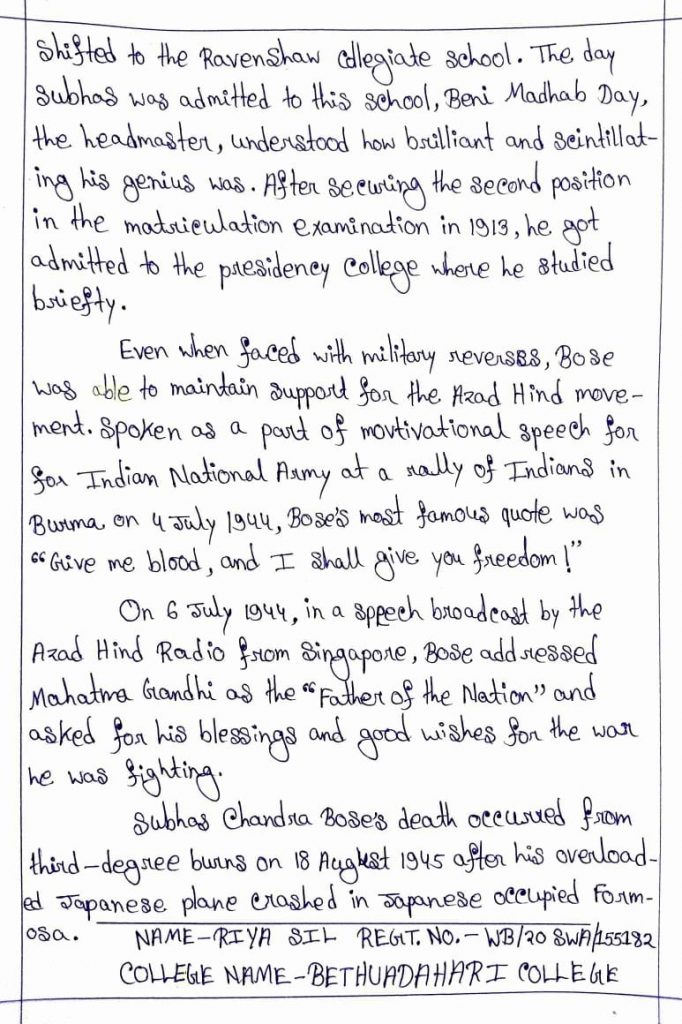 shifted to the Ravenshaw Collegiate school. The day
subhas was admitted to this school, Beni Madhab Day,
the headmaster, understood how brilliant and scintillat-
ing his genius was. After securing the second position
in the matriculation examination in 1913, he got
admitted to the presidency College where he studied
briefty.
Even when faced with military reverses, Bose
was able to maintain support for the Azad Hind move-
ment. Spoken as a part of movtivational speech for
for Indian National Army at a rally of Indians in
Burma on 4 July 1944, Bose's most famous quote was
“Give me blood, and I shall give you freedom!”
On 6 July 1944, in a sppech broadcast by the
Azad Hind Radio from Singapore, Bose addressed
Mahatma Gandhi as the “Father of the Nation” and
asked for his blessings and good wishes for the war
he was fighting.
Subhas Chandra Bose's death occurred from
third-degree burns on 18 August 1945 after his overload-
ed Japanese plane crashed in Japanese occupied Form-
osa. NAME-RIYA SIL REGT. NO.- WB/20 SWA/155182
COLLEGE NAME-BETHUADAHARI COLLEGE